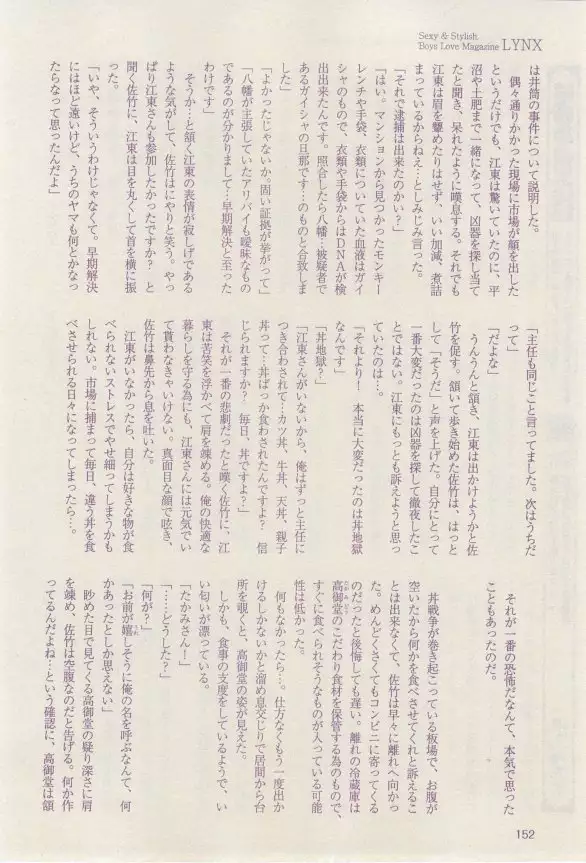 Sexy & Stylish
Boys Love Magazine LYNX
は井筒の事件について説明した。
偶々通りかかった現場に市場が顔を出した
というだけでも、江東は驚いていたのに、平
沼や土肥まで一緒になって、凶器を探し当て
たと聞き、呆れたように嘆息する。それでも
江東は眉を顰めたりはせず、いい加減、煮詰
まっているからねえ…としみじみ言った。
「それで逮捕は出来たのかい?」
「はい。マンションから見つかったモンキー
レンチや手袋、衣類についていた血液はガイ
シャのもので、衣類や手袋からはDNAが検
出出来たんです。照合したら八幡…被疑者で
あるガイシャの旦那です…のものと合致しま
した」
「よかったじゃないか。固い証拠が挙がって」
「八幡が主張していたアリバイも曖昧なもの
であるのが分かりまして…早期解決と至った
わけです」
そうか…と頷く江東の表情が寂しげである
ような気がして、佐竹はにやりと笑う。やっ
ぱり江東さんも参加したかったですか? と
聞く佐竹に、江東は目を丸くして首を横に振
った。
「いや、そういうわけじゃなくて。早期解決
にはほど遠いけど、うちのヤマも何とかなっ
たらなって思ったんだよ」
「主任も同じこと言ってました。次はうちだ
って」
「だよな」
うんうんと頷き、江東は出かけようかと佐
竹を促す。頷いて歩き始めた佐竹は、はっと
して「そうだ」と声を上げた。自分にとって
一番大変だったのは凶器を探して徹夜したこ
とではない。江東にもっとも訴えようと思っ
ていたのは…。
「それより! 本当に大変だったのは丼地獄
なんです」
「丼地獄?」
「江東さんがいないから、俺はずっと主任に
つき合わされて…カツ丼、牛丼、天丼、親子
丼って…丼ばっか食わされたんですよ? 信
じられますか? 毎日、丼ですよ?」
それが一番の悲劇だったと嘆く佐竹に、江
東は苦笑を浮かべて肩を竦める。俺の快適な
暮らしを守る為にも、江東さんには元気でい
て貰わなきゃいけない。真面目な顔で呟き、
佐竹は鼻先から息を吐いた。
江東がいなかったら、自分は好きな物が食
べられないストレスでやせ細ってしまうかも
しれない。市場に捕まって毎日、違う丼を食
べさせられる日々になってしまったら…。
それが一番の恐怖だなんて、本気で思った
こともあったのだ。
丼戦争が巻き起こっている板場で、お腹が
空いたから何かを食べさせてくれと訴えるこ
とは出来なくて、佐竹は早々に離れへ向かっ
た。めんどくさくてもコンビニに寄ってくる
のだったと後悔しても遅い。離れの冷蔵庫は
高御堂のこだわり食材を保管する為のもので、
すぐに食べられそうなものが入っている可能
性は低かった。
何もなかったら…。仕方なくもう一度出か
けるしかないかと溜め息交じりで居間から台
所を覗くと、高御堂の姿が見えた。
しかも、食事の支度をしているようで、い
い匂いが漂っている。
「たかみさん!」
「……どうした?」
「何が?」
「お前が嬉しそうに俺の名を呼ぶなんて、何
かあったとしか思えない」
眇めた目で見てくる高御堂の疑り深さに肩
を竦め、佐竹は空腹なのだと告げる。何か作
ってるんだよね…という確認に、高御堂は頷
152